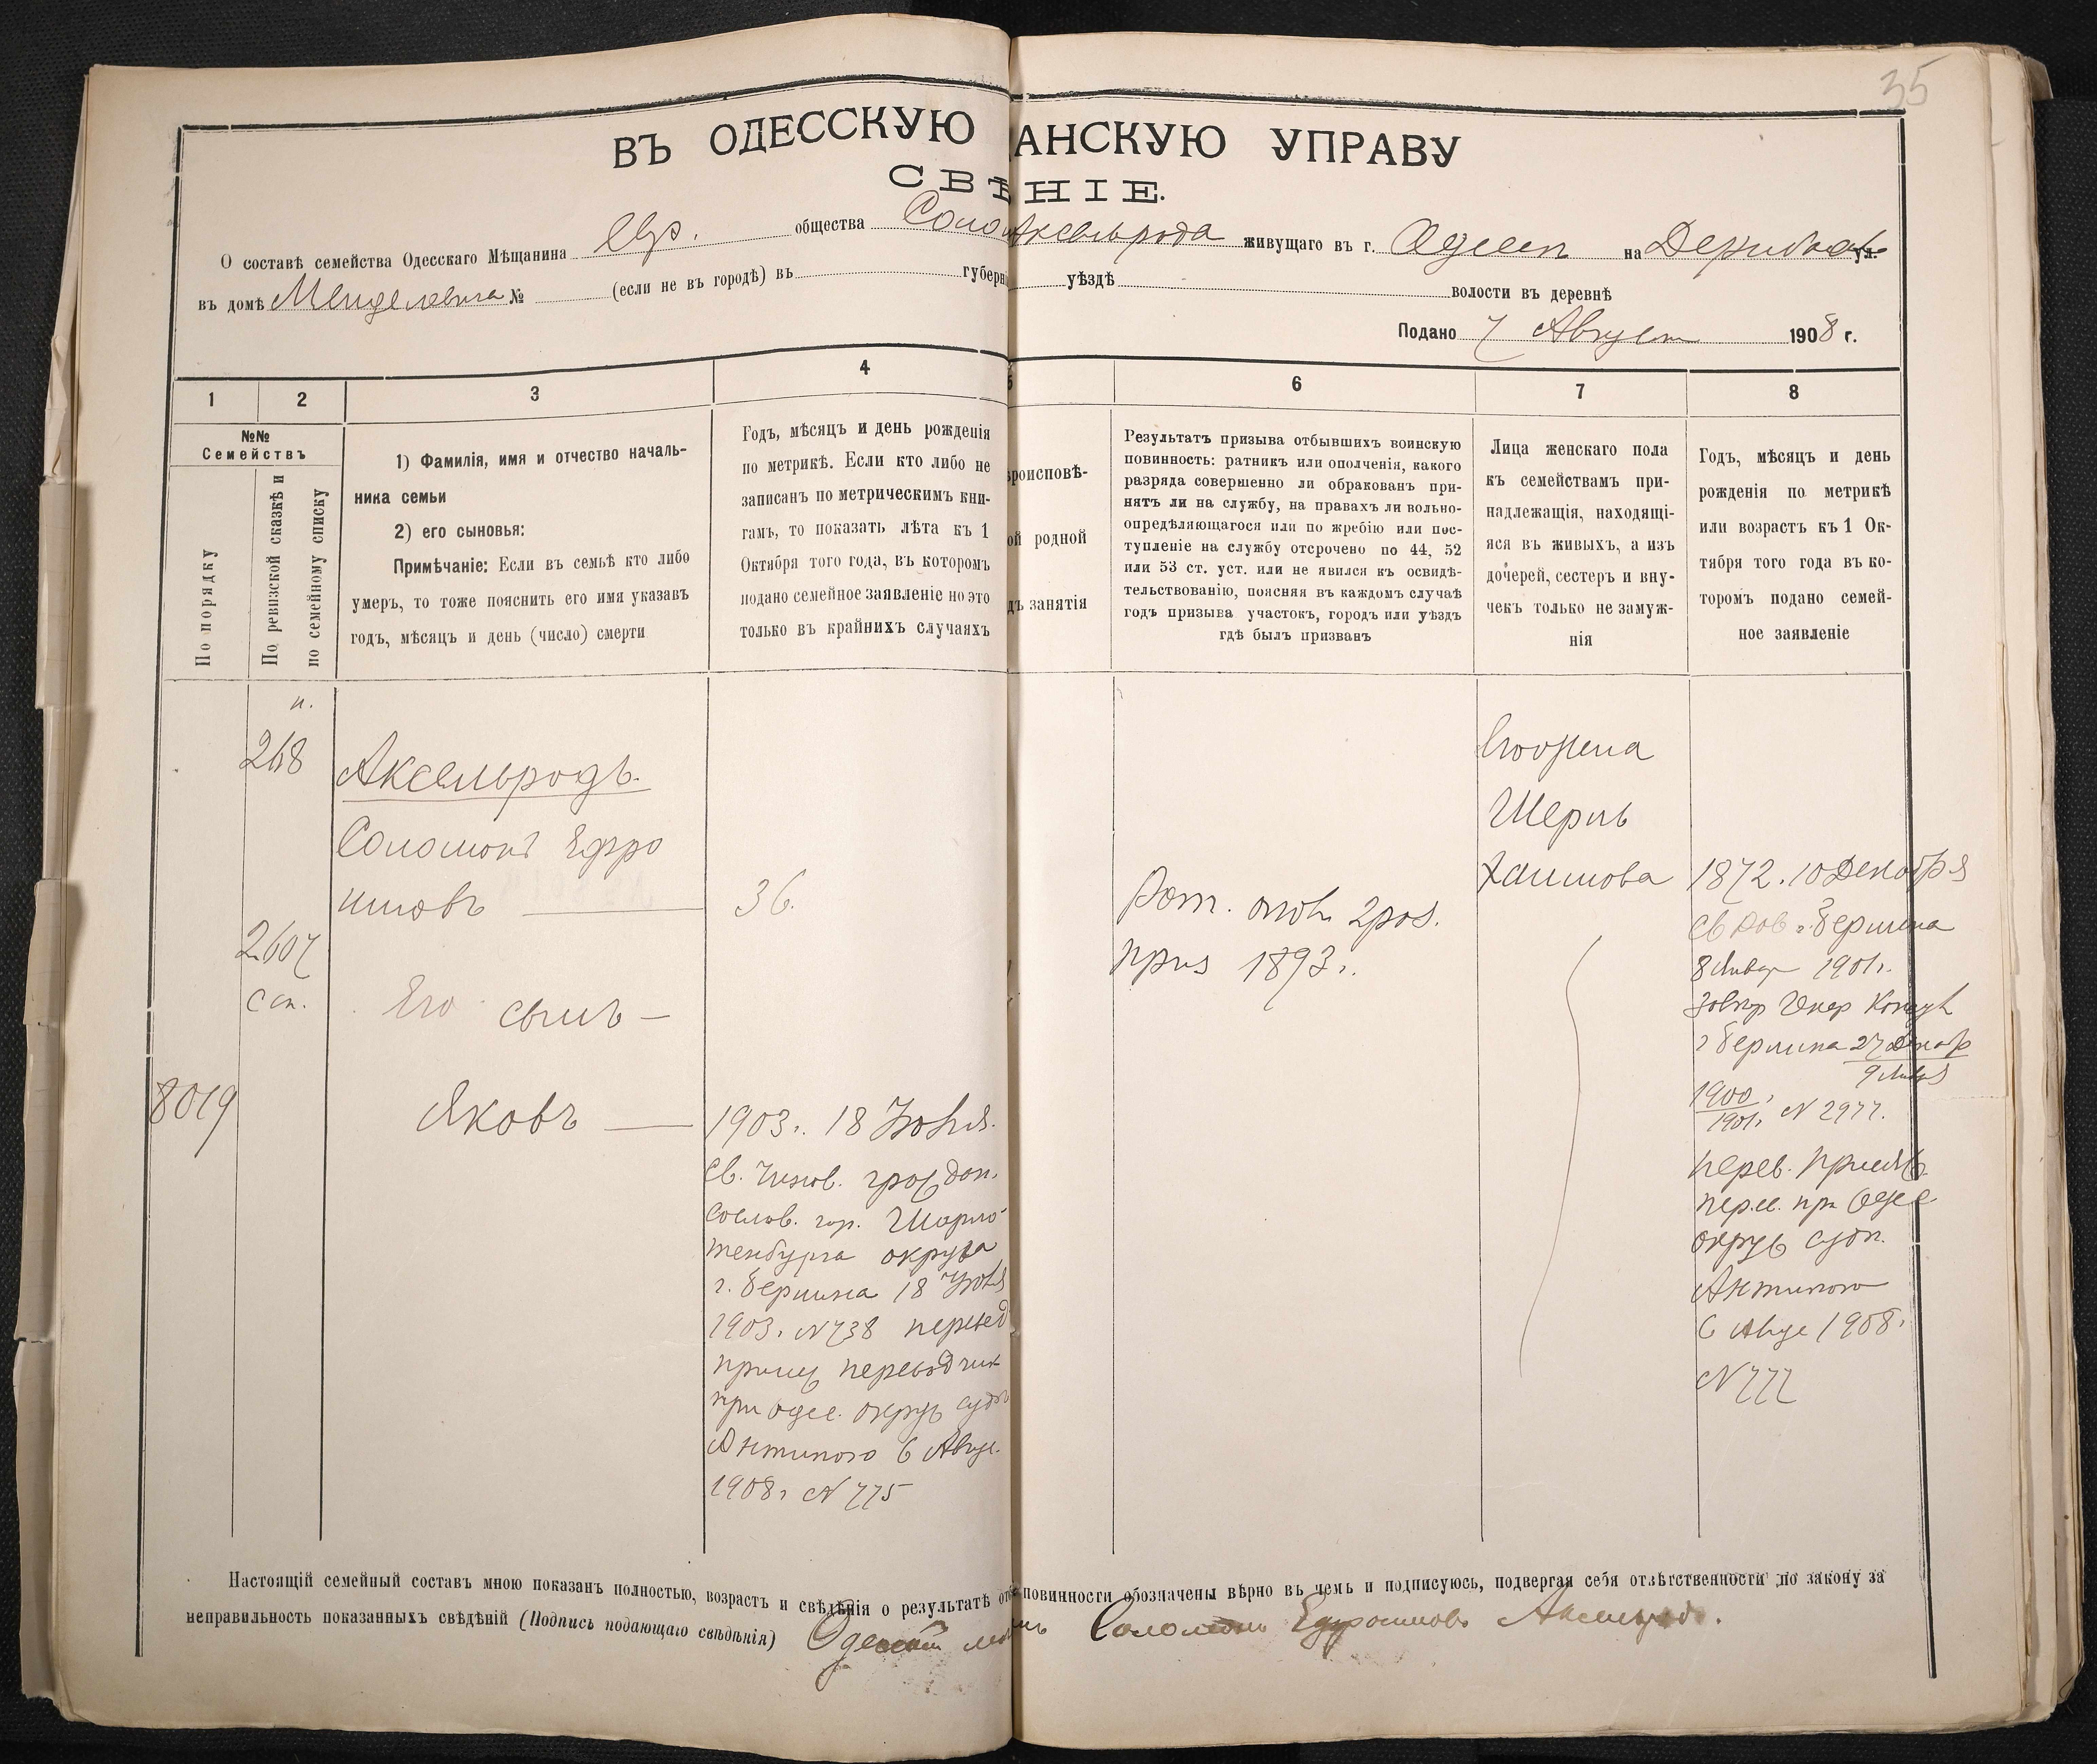 35
ВЪ ОДЕССКУЮ АНСКУЮ УПРАВУ
СВѢНІЕ.
О составѣ семейства Одесскаго Мѣщанина Евр. общества Соло Аксельрода живущаго въ г. Одессѣ на ул.
въ домѣ Менделевича № (если не въ городѣ) въ губерні уѣздѣ волости въ деревнѣ
Подано 7 Август 1908 г.
1 2 3 4 5 6 7 8
№№
Семействъ
По порядку
По ревизской сказкѣ и
по семейному списку
1) Фамилія, имя и отчество началь-
ника семьи
2) его сыновья:
Примѣчаніе: Если въ семьѣ кто либо
умеръ, то тоже пояснить его имя указавъ
годъ, мѣсяцъ и день (число) смерти
Годъ, мѣсяцъ и день рожденія
по метрикѣ. Если кто либо не
записанъ по метрическимъ кни-
гамъ, то показать лѣта къ 1
Октября того года, въ которомъ
подано семейное заявленіе но это
только въ крайнихъ случаяхъ
роисповѣ-
ой родной
дъ занятія
Результатъ призыва отбывшихъ воинскую
повинность: ратникъ или ополченія, какого
разряда совершенно ли обракованъ при-
нятъ ли на службу, на правахъ ли вольно-
опредѣляющагося или по жребію или пос-
тупленіе на службу отсрочено по 44, 52
или 53 ст. уст. или не явился къ освидѣ-
тельствованію, поясняя въ каждомъ случаѣ
годъ призыва участокъ, городъ или уѣздъ
гдѣ былъ призванъ
Лица женскаго пола
къ семействамъ при-
надлежащія, находящі-
яся въ живыхъ, а изъ
дочерей, сестеръ и вну-
чекъ только не замуж-
нія
Годъ, мѣсяцъ и день
рожденія по метрикѣ
или возрастъ къ 1 Ок-
тября того года въ ко-
торомъ подано семей-
ное заявленіе
п.
268
2607
сп.
8019
Аксельродъ
Соломонъ Ефро
имовъ
Его сынъ —
Яковъ —
36.
1903 г. 18 Іюня.
Св. Чинов. граждан.
сослов. гор. Шарло
тенбурга округа
г. Берлина 18 Іюня
1903 г. N 738 перевед
присяж переводчик
при одес. окруж судѣ
Антипого 6 Авгус.
1908 г N 775
Рат. опол 2 раз.
приз 1893 г.
Его жена
Шерль
Хаимова
1872. 10 Декабря
г. Берлина
8 Январ 1901 г.
Генер Консул
г Берлина 27 Декабр
9 Январ
1900
1901 г N 2977.
перев. присяж
перев. при Одес
окруж судѣ
Антипого
6 Авгус 1908 г
N 777
Настоящій семейный составъ мною показанъ полностью, возрастъ и свѣдѣнія о результатѣ от повинности обозначены вѣрно въ чемъ и подписуюсь, подвергая себя отвѣтственности по закону за
неправильность показанныхъ свѣдѣній (Подпись подающаго свѣдѣнія) Одесскій Соломонъ Ефроимовъ Аксельрод.